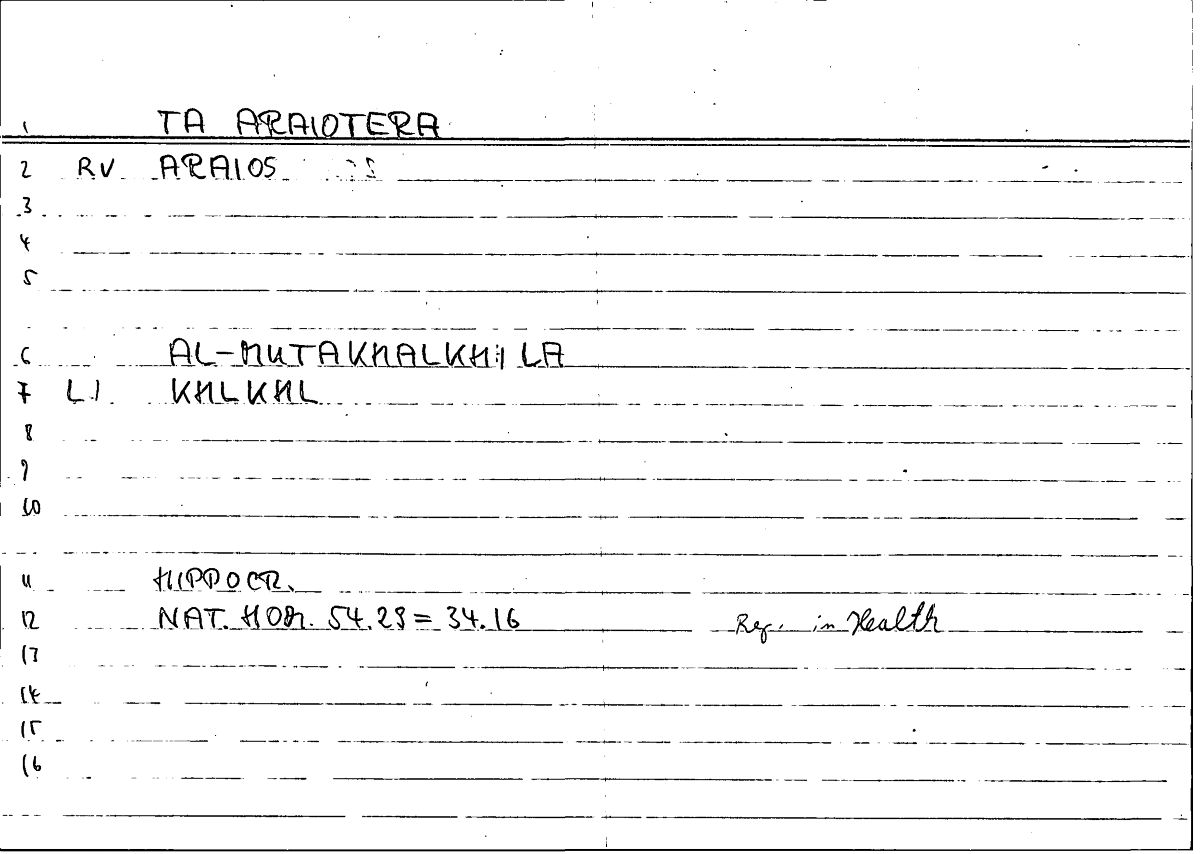 1 TA ARAIOTERA
2 RV ARAIOS
3
4
5
6 AL-MUTAKHALKHILA
7 LI KHLKHL
8
9
10
11 HIPPOCR.
12 NAT. HOM. 54.23 = 34.16 Reg. in Health
13
14
15
16